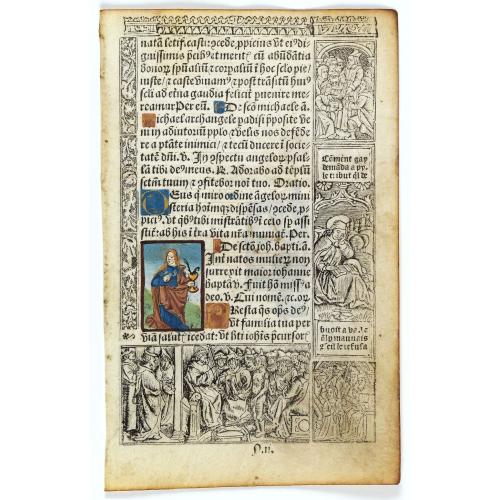 natā letif. castc ꝯcede, ꝓpicius vt ei⁹ di
gnissimis p̄cib⁹ et meritꝭ cū abūdātia
bonoꝝ spūaliū ⁊ corpaliū ī hoc seło pie/
iuste/ ⁊ caste viuam⁹/ ⁊ post trāsitū hui⁹
seli ad eterna gaudia feliciť puenire me
reamur Per eū. De scō michaele a.
ichael archangele padisi pposite ve
ni in adiutoriū pplo ⁊ velis nos defēde
re a ptāte inimici / ⁊ tecū ducere ī socie
tatē dn̄i. v. In ꝯspectu angeloꝝ psal
sā tibi de⁹ meus. R. Adorabo ad tēplū
sctm̄ tuum/ ⁊ ꝯfitebor noi tuo. Oratio.
Eus q̄ miro ordine āgeloꝝ mini
steria hoīmqꝫ dispēsas/ ꝯcede, p/
pici⁹ vt q̄b⁹ tibi mīstrātib⁹ ī celo sp assi
stit: ab his ī trā vita nr̄a muniať. Per.
De sctō ioh. bapti. a.
Int natos mulierꝝ non
surrexit maior iohanne
baptā v. Fuit hō miss⁹ a
deo. v. Cui nomē. ⁊c. oꝝ
Resta qs ops de⁹
vt familia tua per
viā salutꝭ īcedat: vt bti iohīs p̄cursorꝭ
Cōment gay
demāda a py
le tribut q̄l de
buoit a
mauuais
⁊ cil le refusa
D.ii.